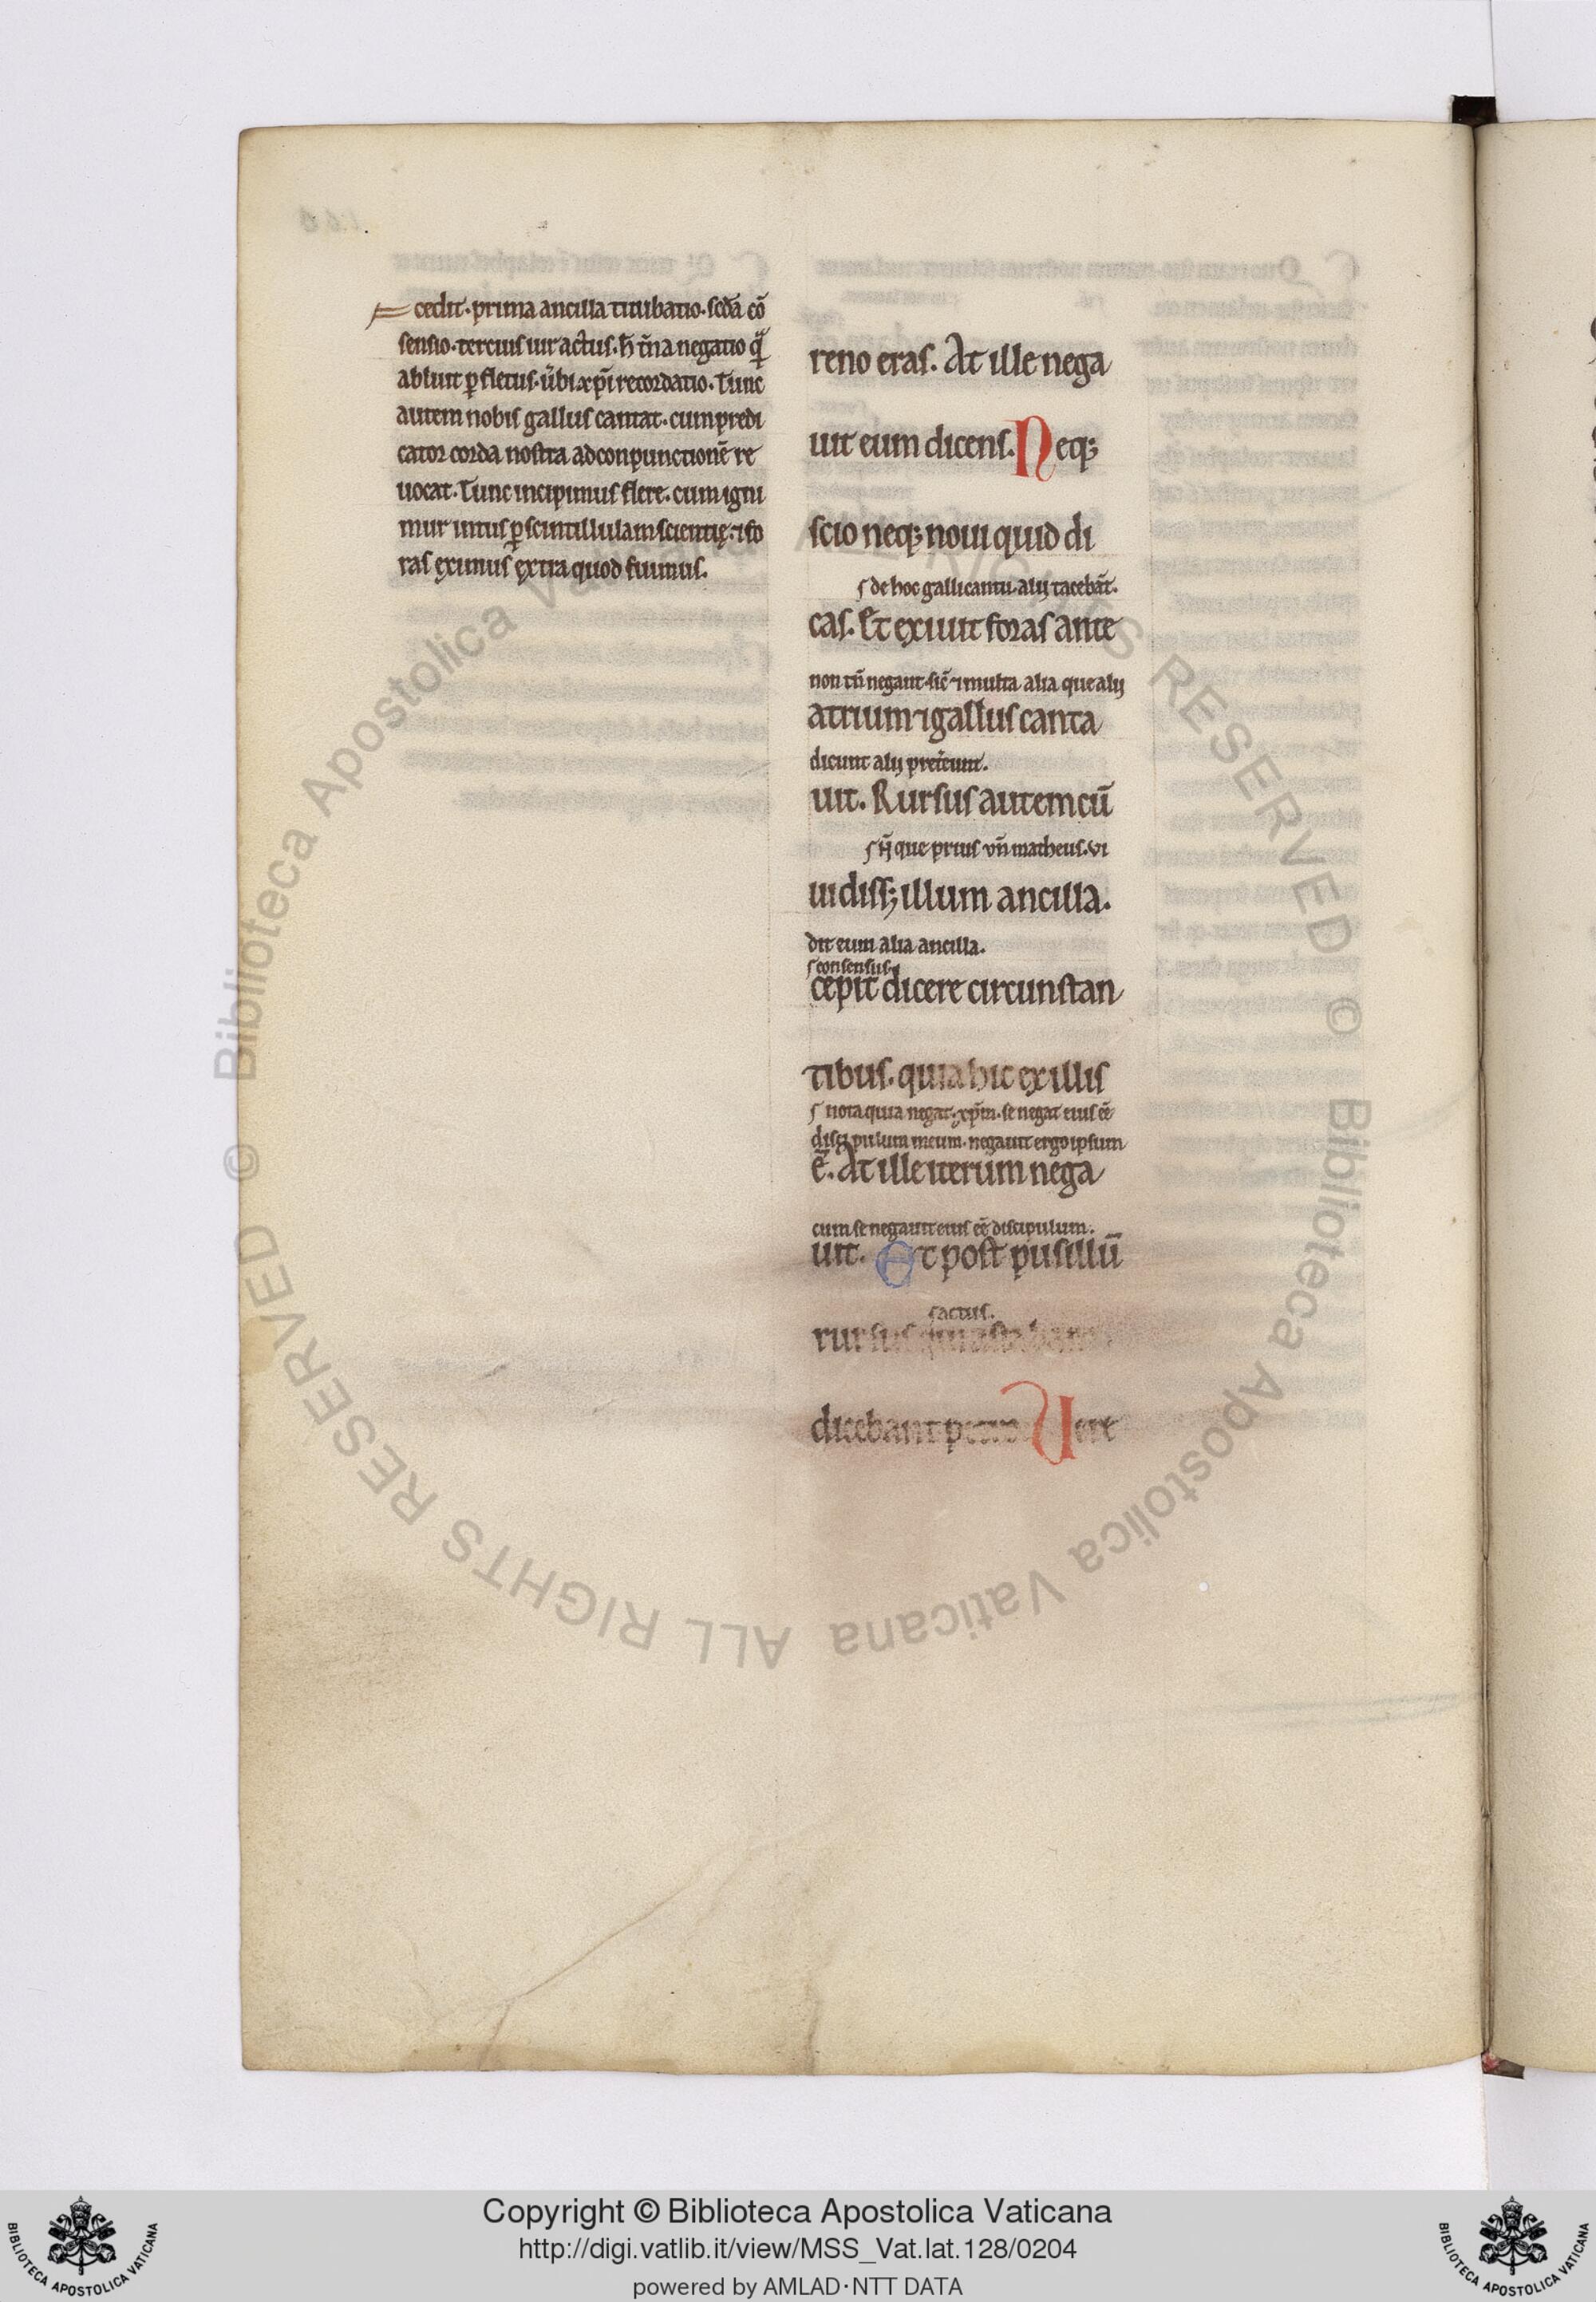 cedit. prima ancilla titubatio. scđa cō
sensio. tercius uir actus. h̄ t̄na negatio q̄
abluit ꝑ fletus. ubi xp̄i recordatio. Tunc
autem nobis gallus cantat. cum predi
cator corda nostra ad conpunctionē re
uocat. Tunc incipimus flere. cum igni
mur intus ꝑ scintillulam scientię. ⁊ fo
ras eximus extra quod fuimus.
reno eras. At ille nega
uit eum dicens. Neq;
scio neq; noui quid di
de hoc gallicantu. alij tacebāt.
cas. Et exiuit foras ante
non tn̄ negant. sic̄ ⁊ multa alia que alij
atrium ⁊ gallus canta
dicunt alij pret̄eunt.
uit. Rursus autem cū
que prius un̄ matheus. vi
uidiss; illum ancilla.
dit eum alia ancilla.
consensus.
cepit dicere circunstan
tibus. quia hic ex illis
nota quia negat xp̄m. se negat eius eē
discipulum negauit ergo ipsum
ē. At ille iterum nega
cum se negauit eius eē discipulum.
uit. Et post pusillū
actus.
rursus qui astabant
dicebant petro Uere
Copyright © Biblioteca Apostolica Vaticana
http://digi.vatlib.it/view/MSS_Vat.lat.128/0204
powered by AMLAD·NTT DATA
BIBLIOTECA APOSTOLICA VATICANA
BIBLIOTECA APOSTOLICA VATICANA
© Biblioteca Apostolica Vaticana ALL RIGHTS RESERVED © Biblioteca Apostolica Vaticana ALL RIGHTS RESERVED